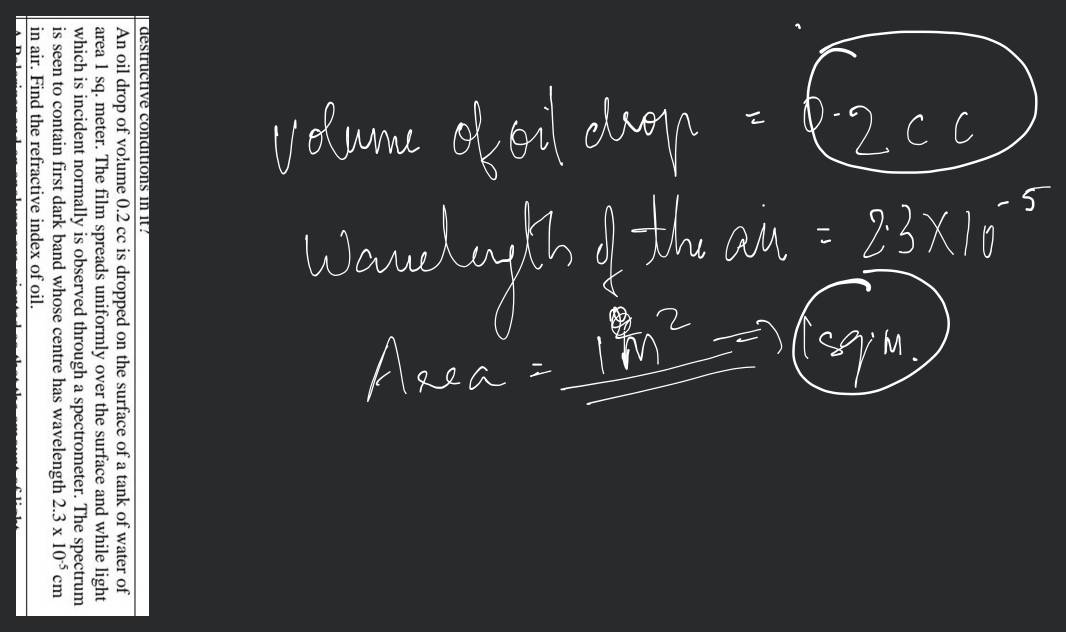 destructive conditions in it?
An oil drop of volume 0.2 cc is dropped on the surface of a tank of water of
area 1 sq. meter. The film spreads uniformly over the surface and while light
which is incident normally is observed through a spectrometer. The spectrum
is seen to contain first dark band whose centre has wavelength 2.3 x 10⁻⁵ cm
in air. Find the refractive index of oil.
Volume of oil drop = 0.2 cc
Wavelength of the air = 2.3 × 10⁻⁵
Area = 1m² => 1 sq.m.